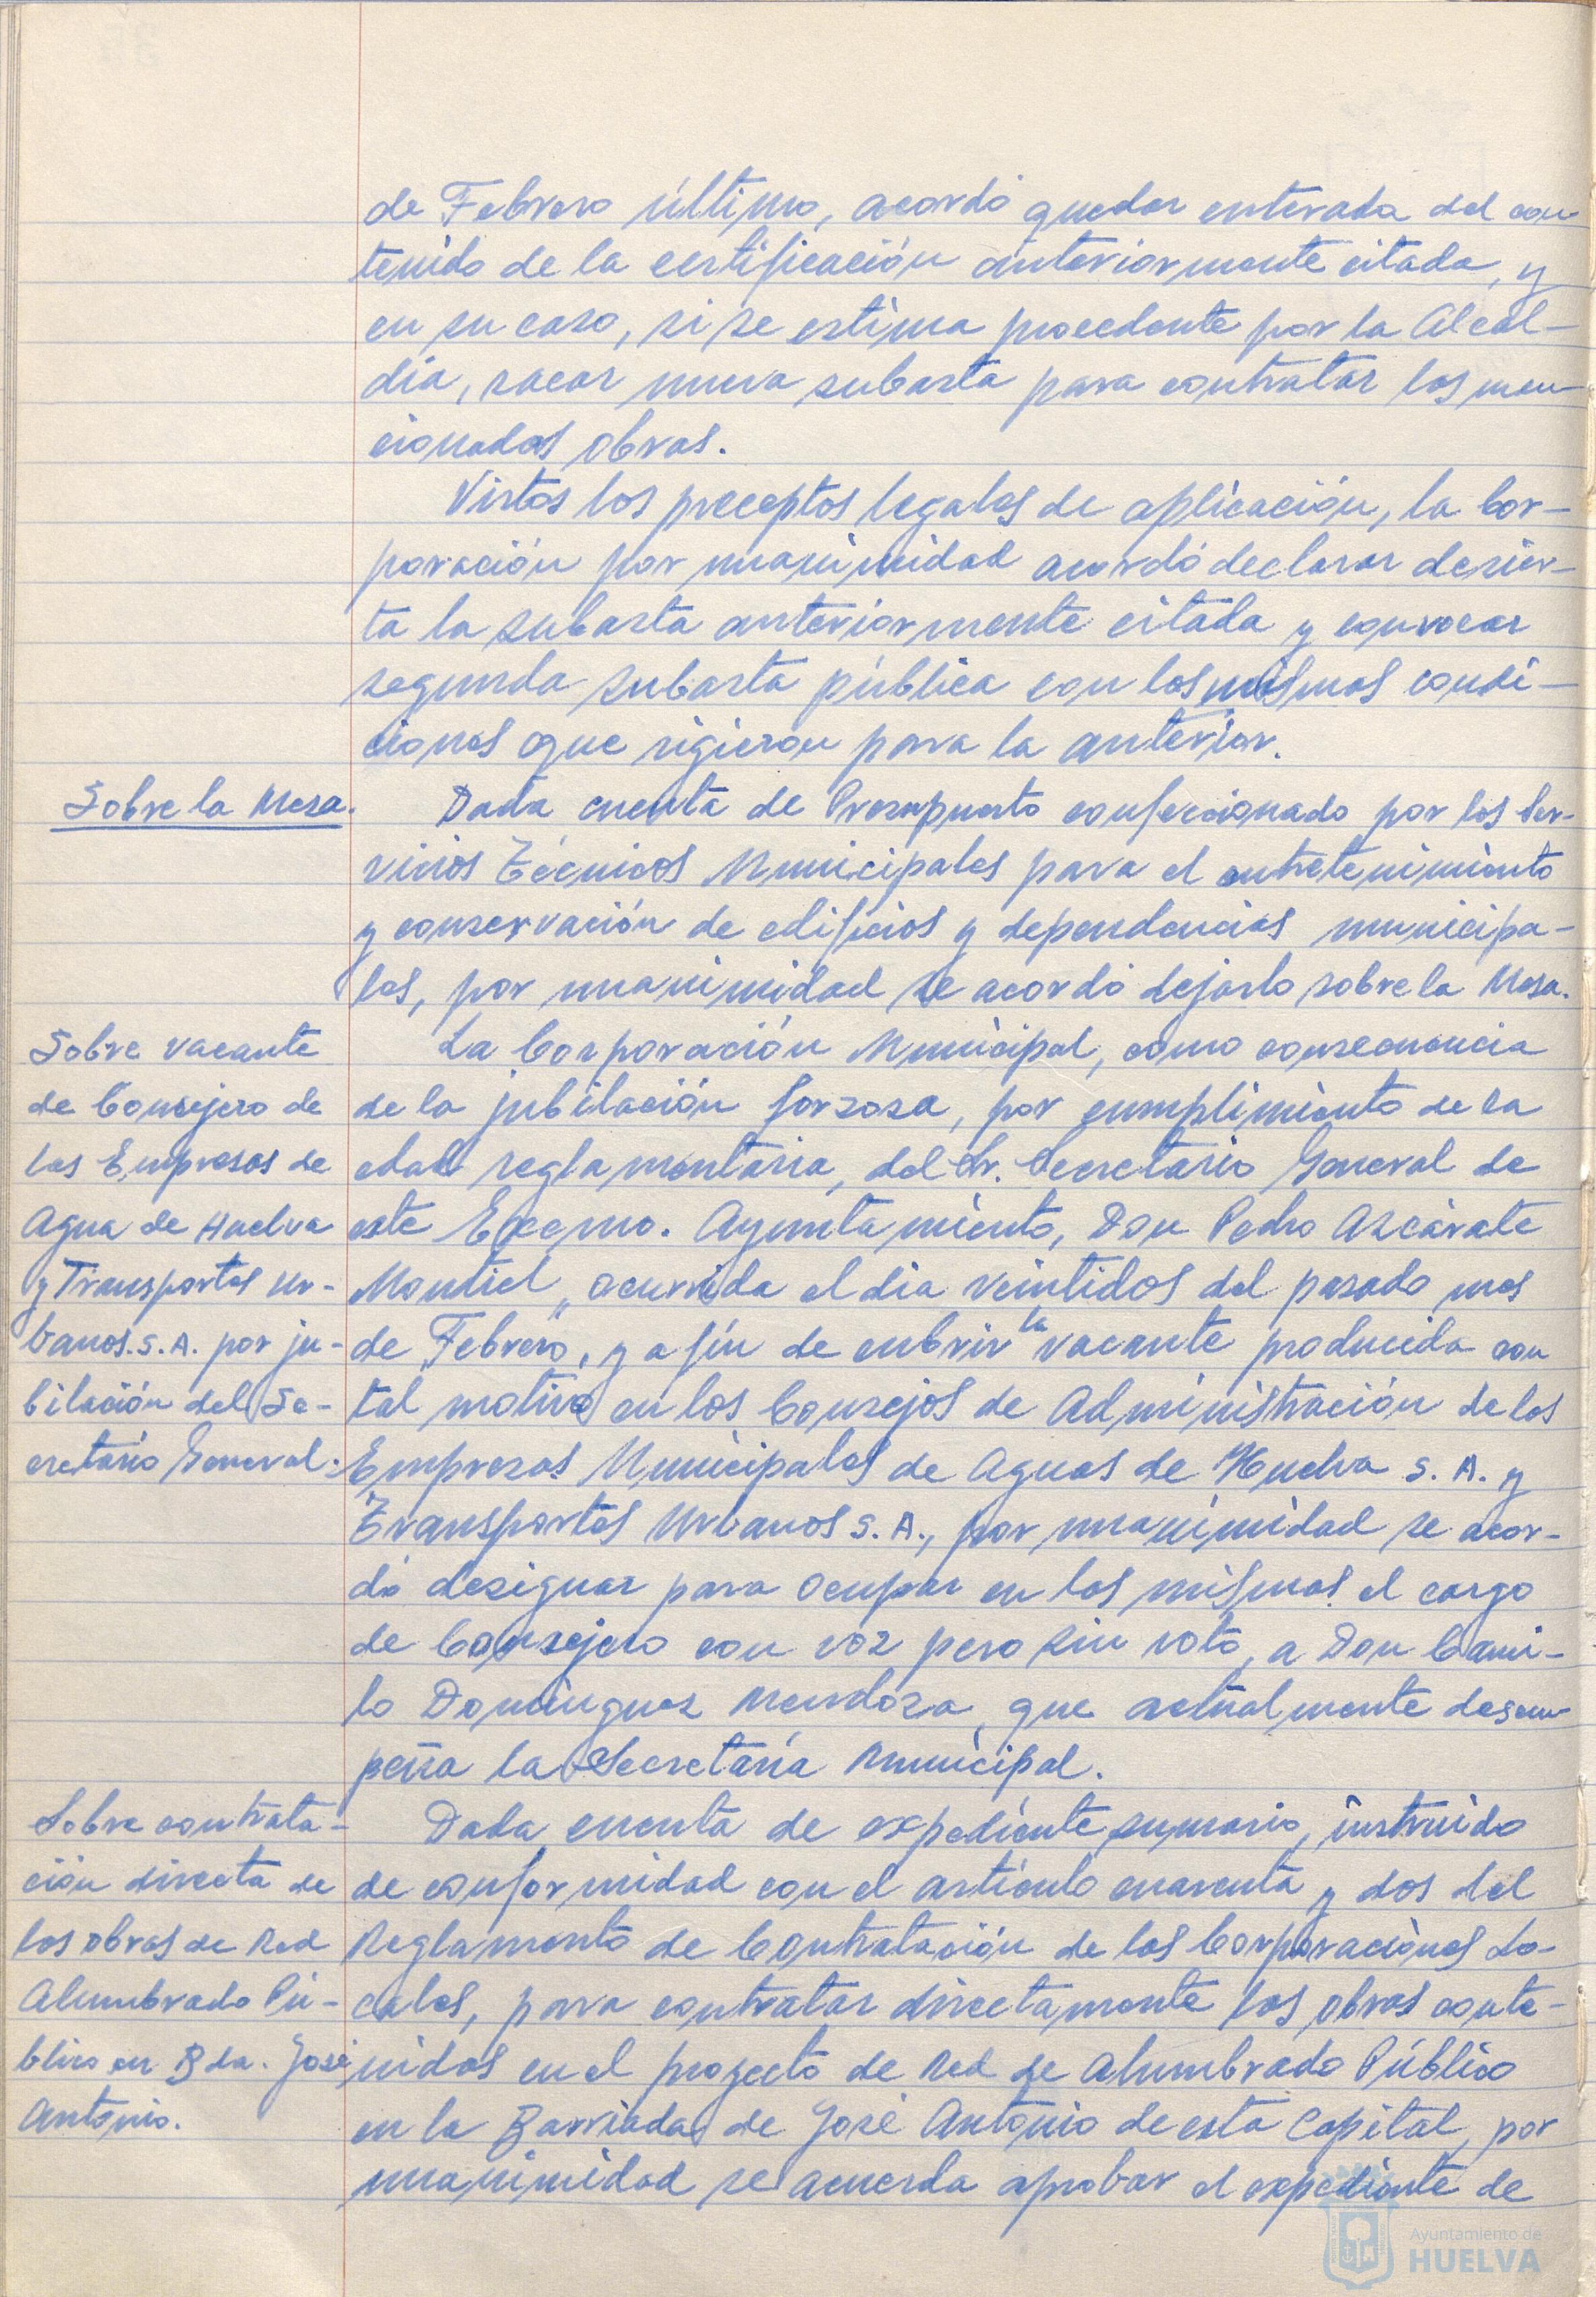 de Febrero último, acordó quedar enterada del con-
tenido de la certificación anteriormente citada, y
en su caso, si se estima procedente por la Alcal-
día, sacar nueva subasta para contratar las men-
cionadas obras.
Vistos los preceptos legales de aplicación, la Cor-
poración por unanimidad acordó declarar desier-
ta la subasta anteriormente citada y convocar
segunda subasta pública con las mismas condi-
ciones que rigieron para la anterior.
Sobre la Mesa.
Dada cuenta de Presupuesto confeccionado por los Ser-
vicios Técnicos Municipales para el entretenimiento
y conservación de edificios y dependencias municipa-
les, por unanimidad se acordó dejarlo sobre la Mesa.
Sobre vacante
de Consejero de
las Empresas de
Agua de Huelva
y Transportes Ur-
banos. S. A. por ju-
bilación del Se-
cretario General.
La Corporación Municipal, como consecuencia
de la jubilación forzosa, por cumplimiento de la
edad reglamentaria, del Sr. Secretario General de
este Excmo. Ayuntamiento, Don Pedro Azcárate
Montiel, ocurrida el dia veintidos del pasado mes
de Febrero, y a fin de cubrir la vacante producida con
tal motivo en los Consejos de Administración de las
Empresas Municipales de Aguas de Huelva S. A. y
Transportes Urbanos S. A., por unanimidad se acor-
dó designar para ocupar en las mismas el cargo
de Consejero con voz pero sin voto, a Don Cami-
lo Dominguez Mendoza, que actualmente desem-
peña la Secretaría Municipal.
Sobre contrata-
ción directa de
las obras de Red
Alumbrado Pú-
blico en Bda. José
Antonio.
Dada cuenta de expediente sumario, instruido
de conformidad con el artículo cuarenta y dos del
Reglamento de Contratación de las Corporaciones Lo-
cales, para contratar directamente las obras conte-
nidas en el proyecto de Red de Alumbrado Público
en la Barriada de José Antonio de esta Capital, por
unanimidad se acuerda aprobar el expediente de
Ayuntamiento de
HUELVA